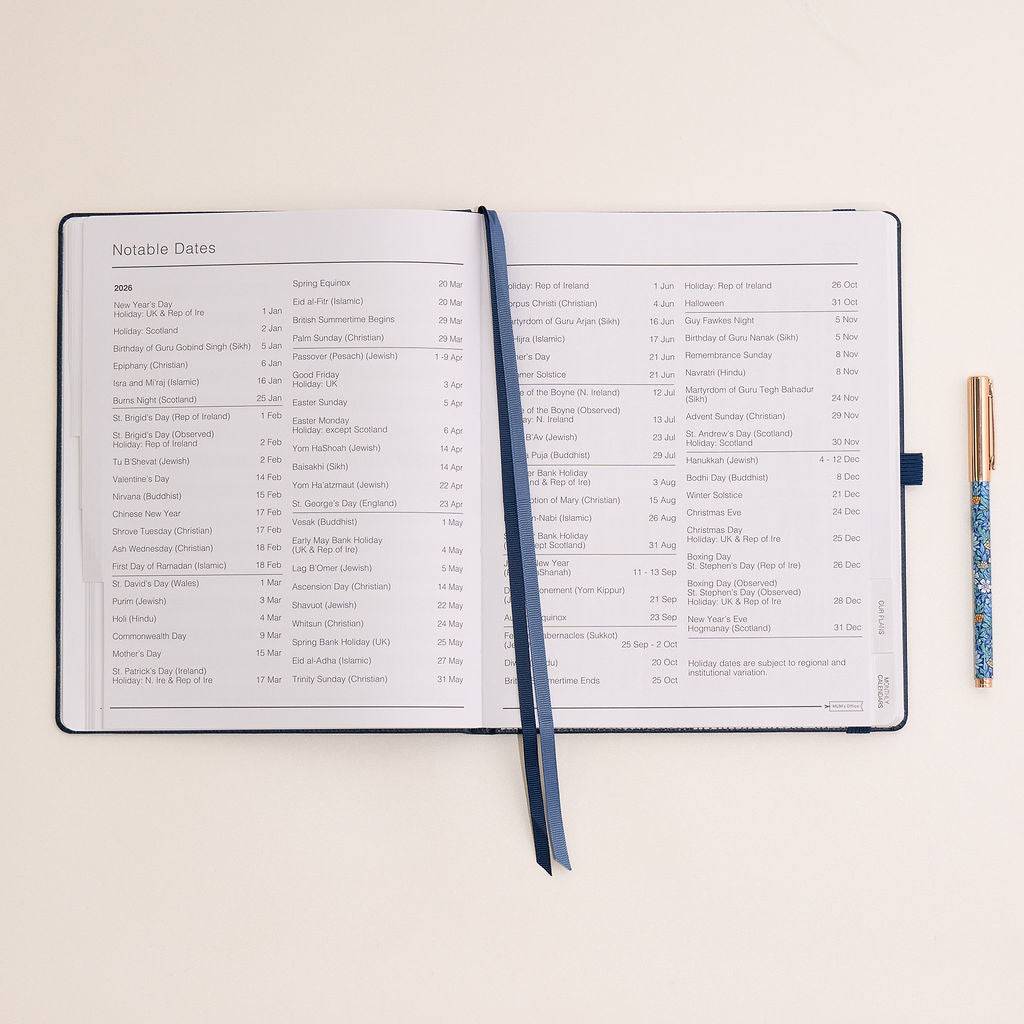 Notable Dates
2026
New Year's Day
Holiday: UK & Rep of Ire 1 Jan
Holiday: Scotland 2 Jan
Birthday of Guru Gobind Singh (Sikh) 5 Jan
Epiphany (Christian) 6 Jan
Isra and Mi'raj (Islamic) 16 Jan
Burns Night (Scotland) 25 Jan
St. Brigid's Day (Rep of Ireland) 1 Feb
St. Brigid's Day (Observed)
Holiday: Rep of Ireland 2 Feb
Tu B'Shevat (Jewish) 2 Feb
Valentine's Day 14 Feb
Nirvana (Buddhist) 15 Feb
Chinese New Year 17 Feb
Shrove Tuesday (Christian) 17 Feb
Ash Wednesday (Christian) 18 Feb
First Day of Ramadan (Islamic) 18 Feb
St. David's Day (Wales) 1 Mar
Purim (Jewish) 3 Mar
Holi (Hindu) 4 Mar
Commonwealth Day 9 Mar
Mother's Day 15 Mar
St. Patrick's Day (Ireland)
Holiday: N. Ire & Rep of Ire 17 Mar
Spring Equinox 20 Mar
Eid al-Fitr (Islamic) 20 Mar
British Summertime Begins 29 Mar
Palm Sunday (Christian) 29 Mar
Passover (Pesach) (Jewish) 1 -9 Apr
Good Friday
Holiday: UK 3 Apr
Easter Sunday 5 Apr
Easter Monday
Holiday: except Scotland 6 Apr
Yom HaShoah (Jewish) 14 Apr
Baisakhi (Sikh) 14 Apr
Yom Ha'atzmaut (Jewish) 22 Apr
St. George's Day (England) 23 Apr
Vesak (Buddhist) 1 May
Early May Bank Holiday
(UK & Rep of Ire) 4 May
Lag B'Omer (Jewish) 5 May
Ascension Day (Christian) 14 May
Shavuot (Jewish) 22 May
Whitsun (Christian) 24 May
Spring Bank Holiday (UK) 25 May
Eid al-Adha (Islamic) 27 May
Trinity Sunday (Christian) 31 May
oliday: Rep of Ireland 1 Jun
orpus Christi (Christian) 4 Jun
artyrdom of Guru Arjan (Sikh) 16 Jun
Hijra (Islamic) 17 Jun
er's Day 21 Jun
mer Solstice 21 Jun
e of the Boyne (N. Ireland) 12 Jul
e of the Boyne (Observed)
y: N. Ireland 13 Jul
B'Av (Jewish) 23 Jul
a Puja (Buddhist) 29 Jul
er Bank Holiday
nd & Rep of Ire) 3 Aug
ption of Mary (Christian) 15 Aug
n-Nabi (Islamic) 26 Aug
Bank Holiday
ept Scotland) 31 Aug
New Year
haShanah) 11 - 13 Sep
onement (Yom Kippur)
21 Sep
quinox 23 Sep
abernacles (Sukkot)
25 Sep - 2 Oct
20 Oct
mertime Ends 25 Oct
Holiday: Rep of Ireland 26 Oct
Halloween 31 Oct
Guy Fawkes Night 5 Nov
Birthday of Guru Nanak (Sikh) 5 Nov
Remembrance Sunday 8 Nov
Navratri (Hindu) 8 Nov
Martyrdom of Guru Tegh Bahadur
(Sikh) 24 Nov
Advent Sunday (Christian) 29 Nov
St. Andrew's Day (Scotland)
Holiday: Scotland 30 Nov
Hanukkah (Jewish) 4 - 12 Dec
Bodhi Day (Buddhist) 8 Dec
Winter Solstice 21 Dec
Christmas Eve 24 Dec
Christmas Day
Holiday: UK & Rep of Ire 25 Dec
Boxing Day
St. Stephen's Day (Rep of Ire) 26 Dec
Boxing Day (Observed)
St. Stephen's Day (Observed)
Holiday: UK & Rep of Ire 28 Dec
New Year's Eve
Hogmanay (Scotland) 31 Dec
Holiday dates are subject to regional and
institutional variation.
MUM's Office
OUR PLANS
MONTHLY
CALENDARS